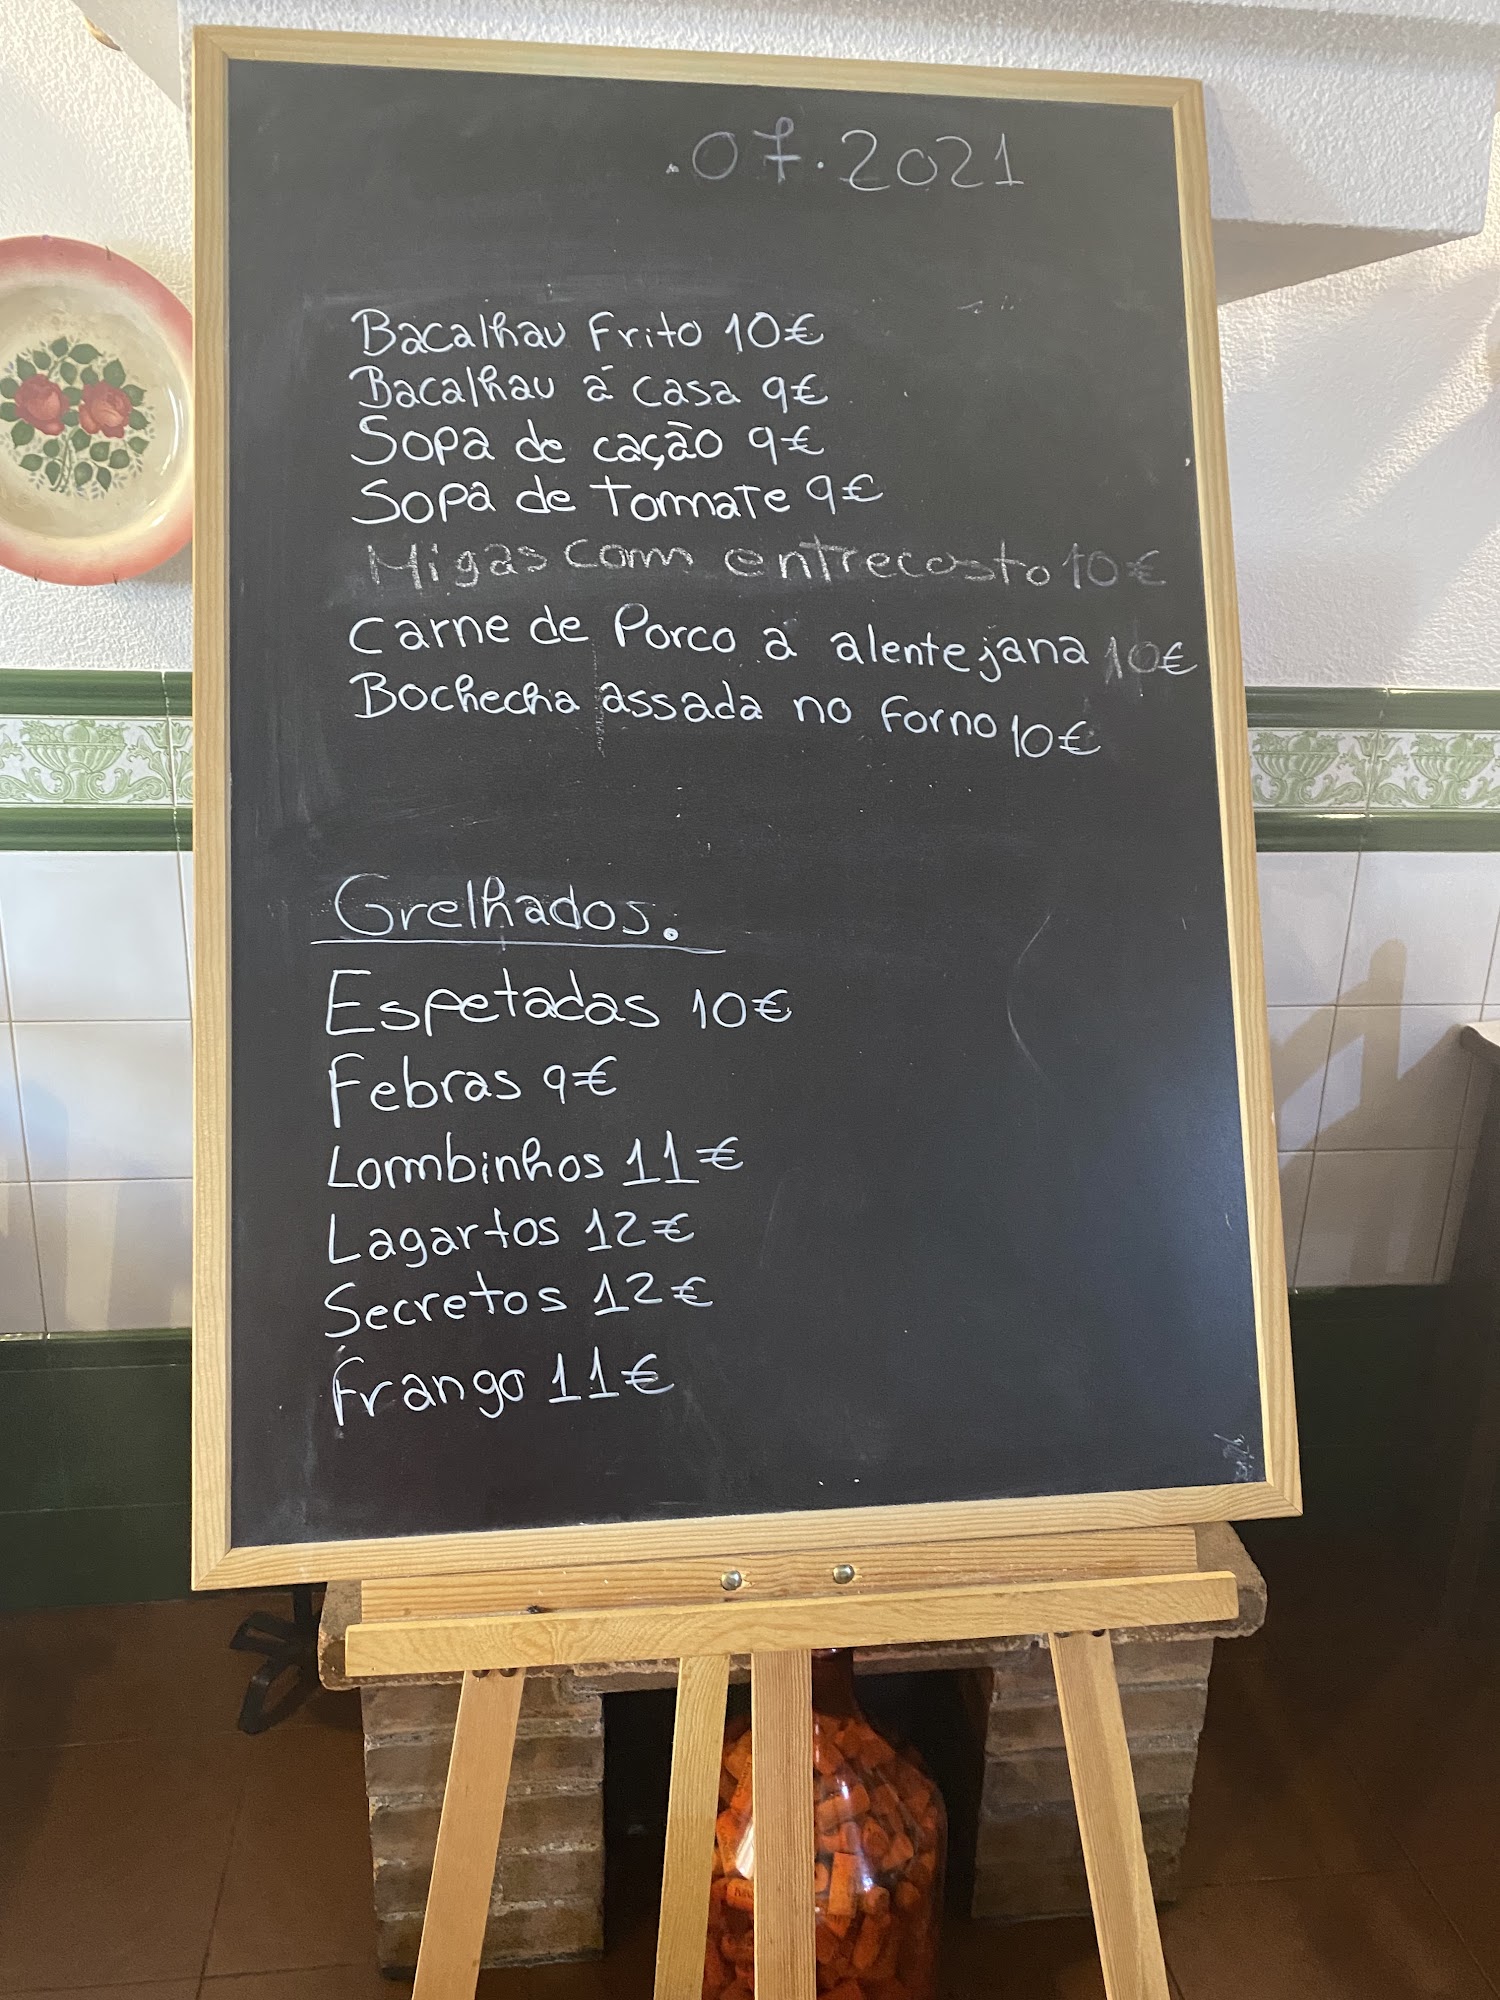 .07.2021
Bacalhau Frito 10€
Bacalhau á casa 9€
Sopa de cação 9€
Sopa de Tomate 9€
Migas com entrecosto 10€
Carne de Porco a alentejana 10€
Bochecha assada no Forno 10€
Grelhados.
Espetadas 10€
Febras 9€
Lombinhos 11€
Lagartos 12€
Secretos 12€
Frango 11€